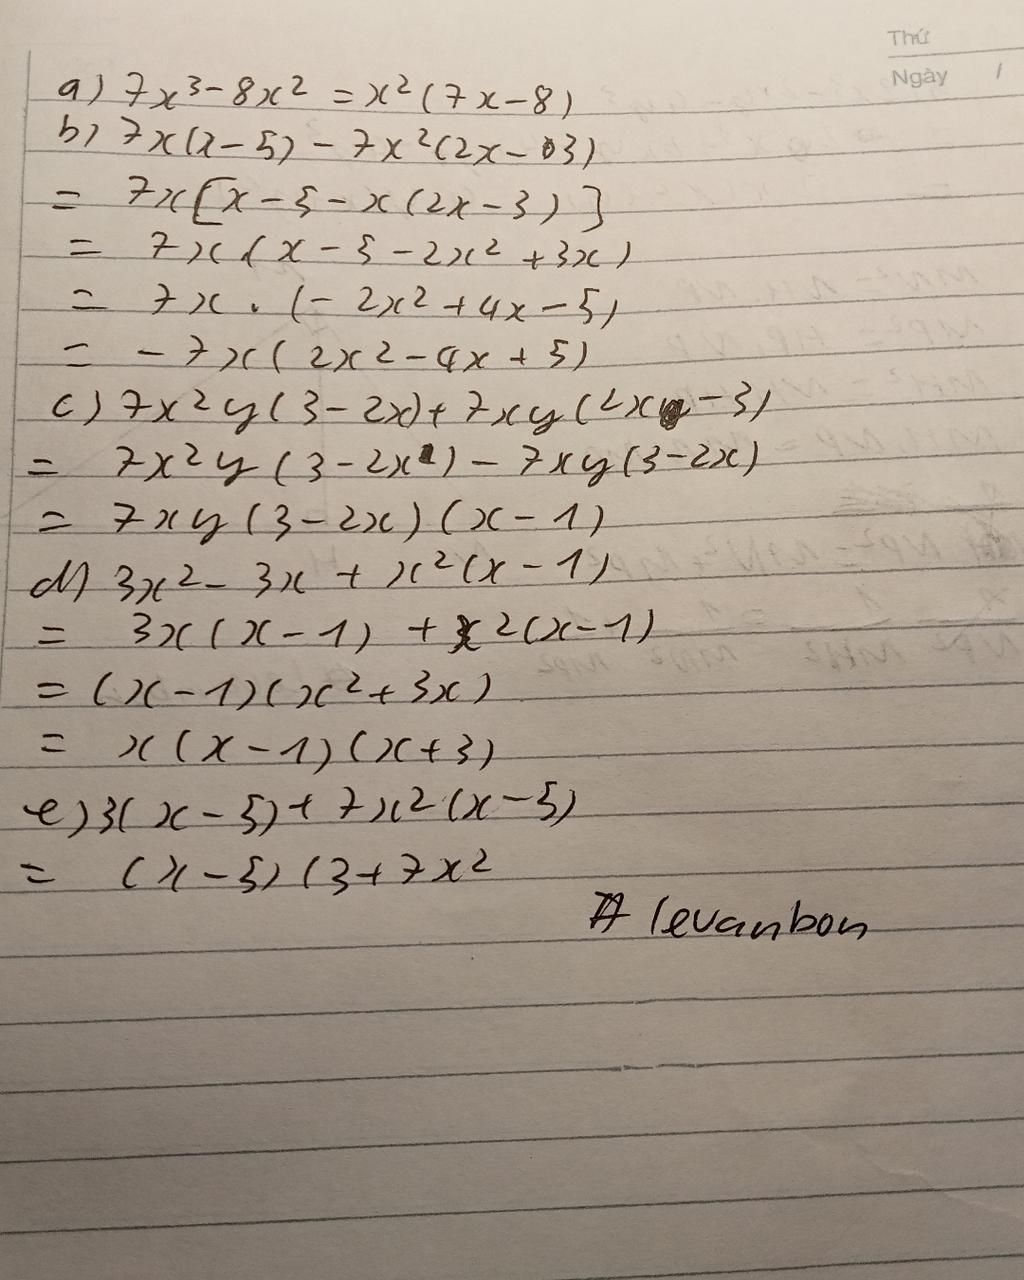 Thứ
Ngày /
a) 7x³ - 8x² = x² (7x - 8)
b) 7x(x - 5) - 7x²(2x - 3)
= 7x[x - 5 - x(2x - 3)]
= 7x(x - 5 - 2x² + 3x)
= 7x . (- 2x² + 4x - 5)
= - 7x(2x² - 4x + 5)
c) 7x²y(3 - 2x) + 7xy(2x - 3)
= 7x²y(3 - 2x) - 7xy(3 - 2x)
= 7xy(3 - 2x)(x - 1)
d) 3x² - 3x + x²(x - 1)
= 3x(x - 1) + x²(x - 1)
= (x - 1)(x² + 3x)
= x(x - 1)(x + 3)
e) 3(x - 5) + 7x²(x - 5)
= (x - 5)(3 + 7x²
# levanbon